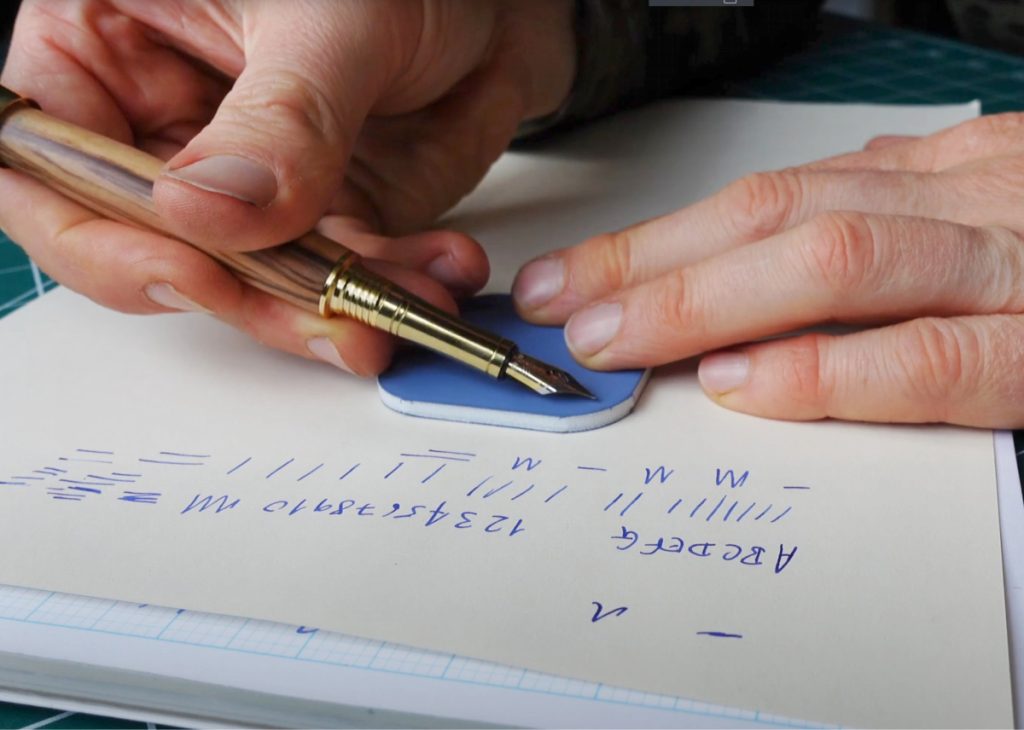 ABCDEFG 12345678910